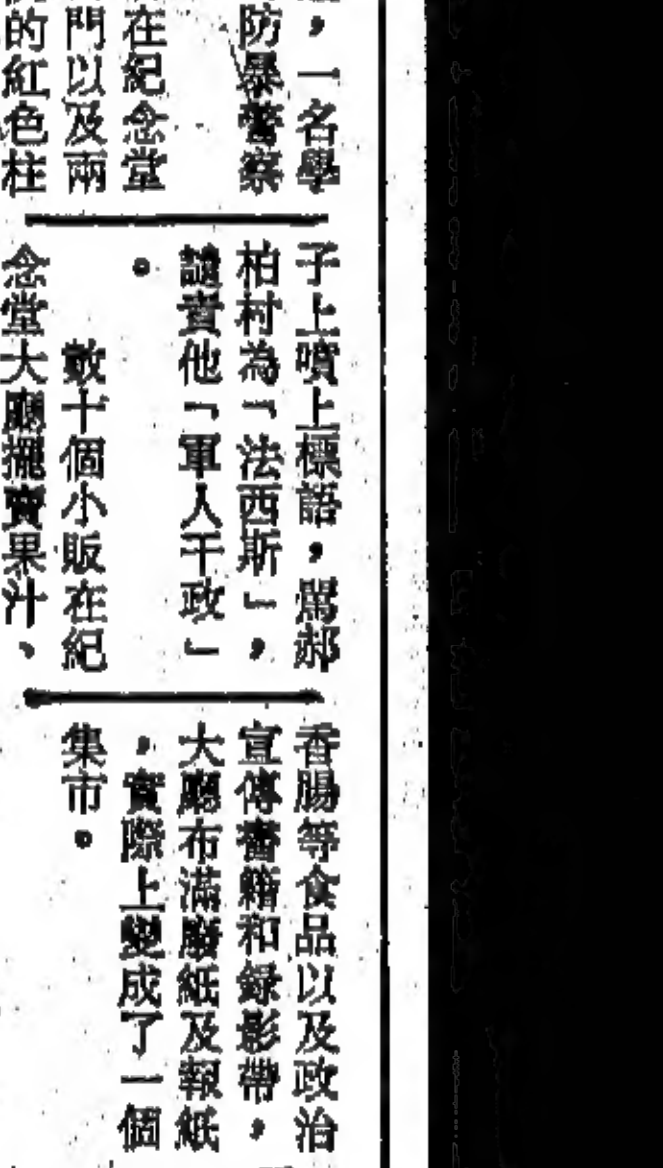 ，一名學
防暴警察
在紀念堂
門以及兩
的紅色柱
子上噴上標語，駡郝
柏村為「法西斯」，
譴責他「軍人干政」
。
數十個小販在紀
念堂大廳擺賣果汁、
香腸等食品以及政治
宣傳書籍和錄影帶，
大廳布滿廢紙及報紙
，實際上變成了一個
集市。